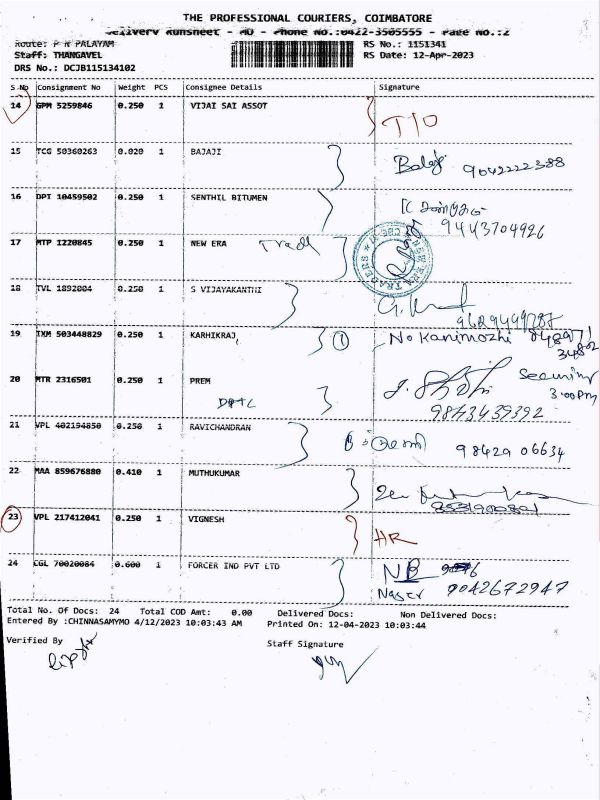 THE PROFESSIONAL COURIERS, COIMBATORE
Delivery Runsheet - MD - Phone No.:0422-3505555 - Page No.:2
Route: P N PALAYAM RS No.: 1151341
Staff: THANGAVEL RS Date: 12-Apr-2023
DRS No.: DCJB115134102
S.No Consignment No Weight PCS Consignee Details Signature
14 GPM 5259846 0.250 1 VIJAI SAI ASSOT T/O
15 TCG 50360263 0.020 1 BAJAJI Balaji 9042222388
16 DPT 10459502 0.250 1 SENTHIL BITUMEN 9443704926
17 MTP 1220845 0.250 1 NEW ERA NEW ERA TRADERS
18 TVL 1892004 0.250 1 S VIJAYAKANTHI 9629449787
19 IXM 503448829 0.250 1 KARHIKRAJ, 1 No Kanimozhi
20 MTR 2316501 0.250 1 PREM Security 3.00pm
9843439392
21 VPL 402194850 0.250 1 RAVICHANDRAN 98429 06634
22 MAA 859676880 0.410 1 MUTHUKUMAR
23 VPL 217412041 0.250 1 VIGNESH HR
24 CGL 70020084 0.600 1 FORCER IND PVT LTD NB
9042672947
Total No. Of Docs: 24 Total COD Amt: 0.00 Delivered Docs: Non Delivered Docs:
Entered By :CHINNASAMYMO 4/12/2023 10:03:43 AM Printed On: 12-04-2023 10:03:44
Verified By Staff Signature